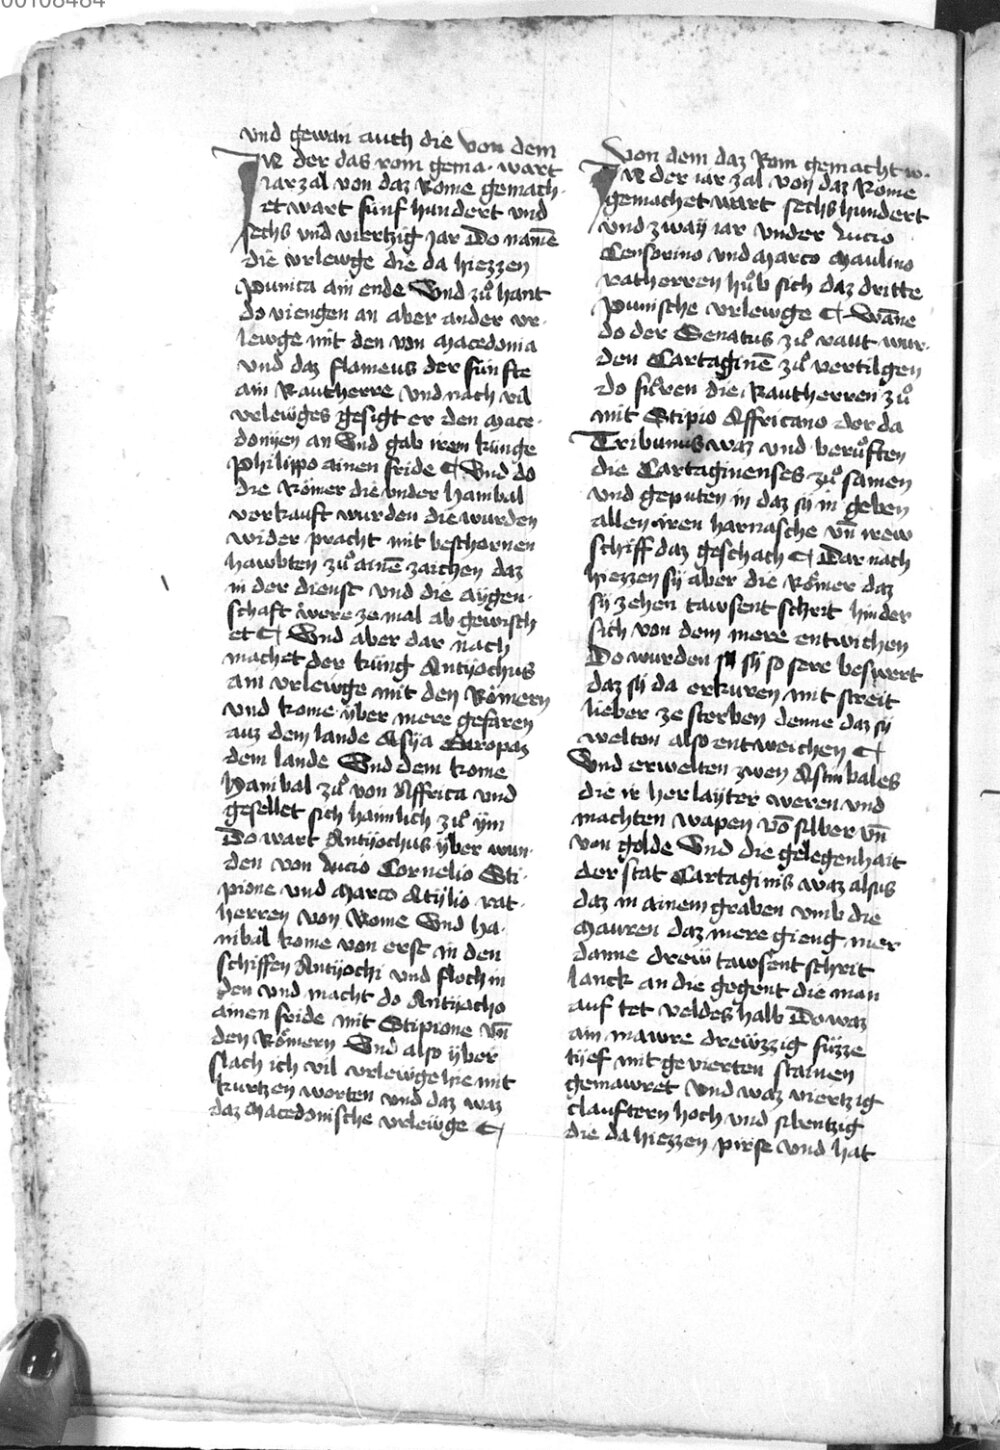 00108484
vnd gewan auch die von dem
IN der das rom gema. wart
iarzal von daz Rome gemach-
et wart fünf hundert vnd
sechs vnd viertzig iar Do namē
die vrlewge die da hiezzen
Punica ain ende Vnd zuͦ hant
do viengen an aber ander vr-
lewge mit den von Macedonia
vnd daz flameus der fünfte
ain Rautherre vnd nach vil
vrlewges gesigt er den Mace-
donijen an Vnd gab irem künge
Philippo ainen fride ¶ Vnd do
die Römer die vnder hanibal
verkauft wurden die wurden
wider pracht mit beschornen
hawbten zuͦ ainē zaichen daz
in der dienst vnd die aygen-
schaft were ze mal ab gewisch
et ¶ Vnd aber dar nach
machet der küng Antyochus
ain vrlewge mit den Römern
vnd kome yber mere gefaren
auz dem lande Asya Eropaz
dem lande Vnd dem kome
Hanibal zuͦ von Affrica vnd
gesellet sich haimlich zuͦ ym
Do wart Antyochus yber wun-
den von Lucio Cornelio Sci-
pione vnd Marco Atylio rat-
herren von Rome Vnd ha-
nibal kome von erst in den
schiffen Antyochi vnd floch in
den vnd macht do Antyocho
ainen fride mit Scipione vn̄
den Römern Vnd also yber
slach ich vil vrlewge hie mit
kurtzen worten vnd daz waz
daz Macedonische vrlewge ¶
Von dem daz Rom gemacht w.
IN der iar zal von daz Rome
gemachet wart sechs hundert
vnd zway iar vnder Lucio
Censorino vnd Marco Maulino
ratherren huͦb sich daz dritte
Punische vrlewge ¶ Wāne
do der Senatus zuͦ raut wur-
den Cartaginē zuͦ vertilgen
do fuͦren die Rautherren zuͦ
mit Scipio Affricano der da
Tribunus waz vnd beruͦften
die Cartaginenses zuͦ samen
vnd geputen in daz sy in geben
allen iren harnasche vn̄ irew
schiff daz geschach ¶ Dar nach
hiezzen sy aber die Römer daz
sy zehen tawsent schrit hinder
sich von dem mere entwichen
Do wurden sy so sere beswert
daz sy da erkuren mit streit
lieber ze sterben denne daz sy
welten also entweichen ¶
Vnd erwelten zwen Astrubales
die ir herlayter weren vnd
machten wapen vō silber vn̄
von golde Vnd die gelegenhait
der stat Cartaginis waz alsus
daz in ainem graben vmb die
Mauren daz mere gieng mer
danne drew tawsent schrit
lanck an die gegent die man
auf tet veldes halb Do waz
ain mawre drewzzig füzze
tyef mit gevierten stainen
gemawret vnd waz viertzig
clauftern hoch vnd sibentzig
die da hiezzen pirse vnd hat